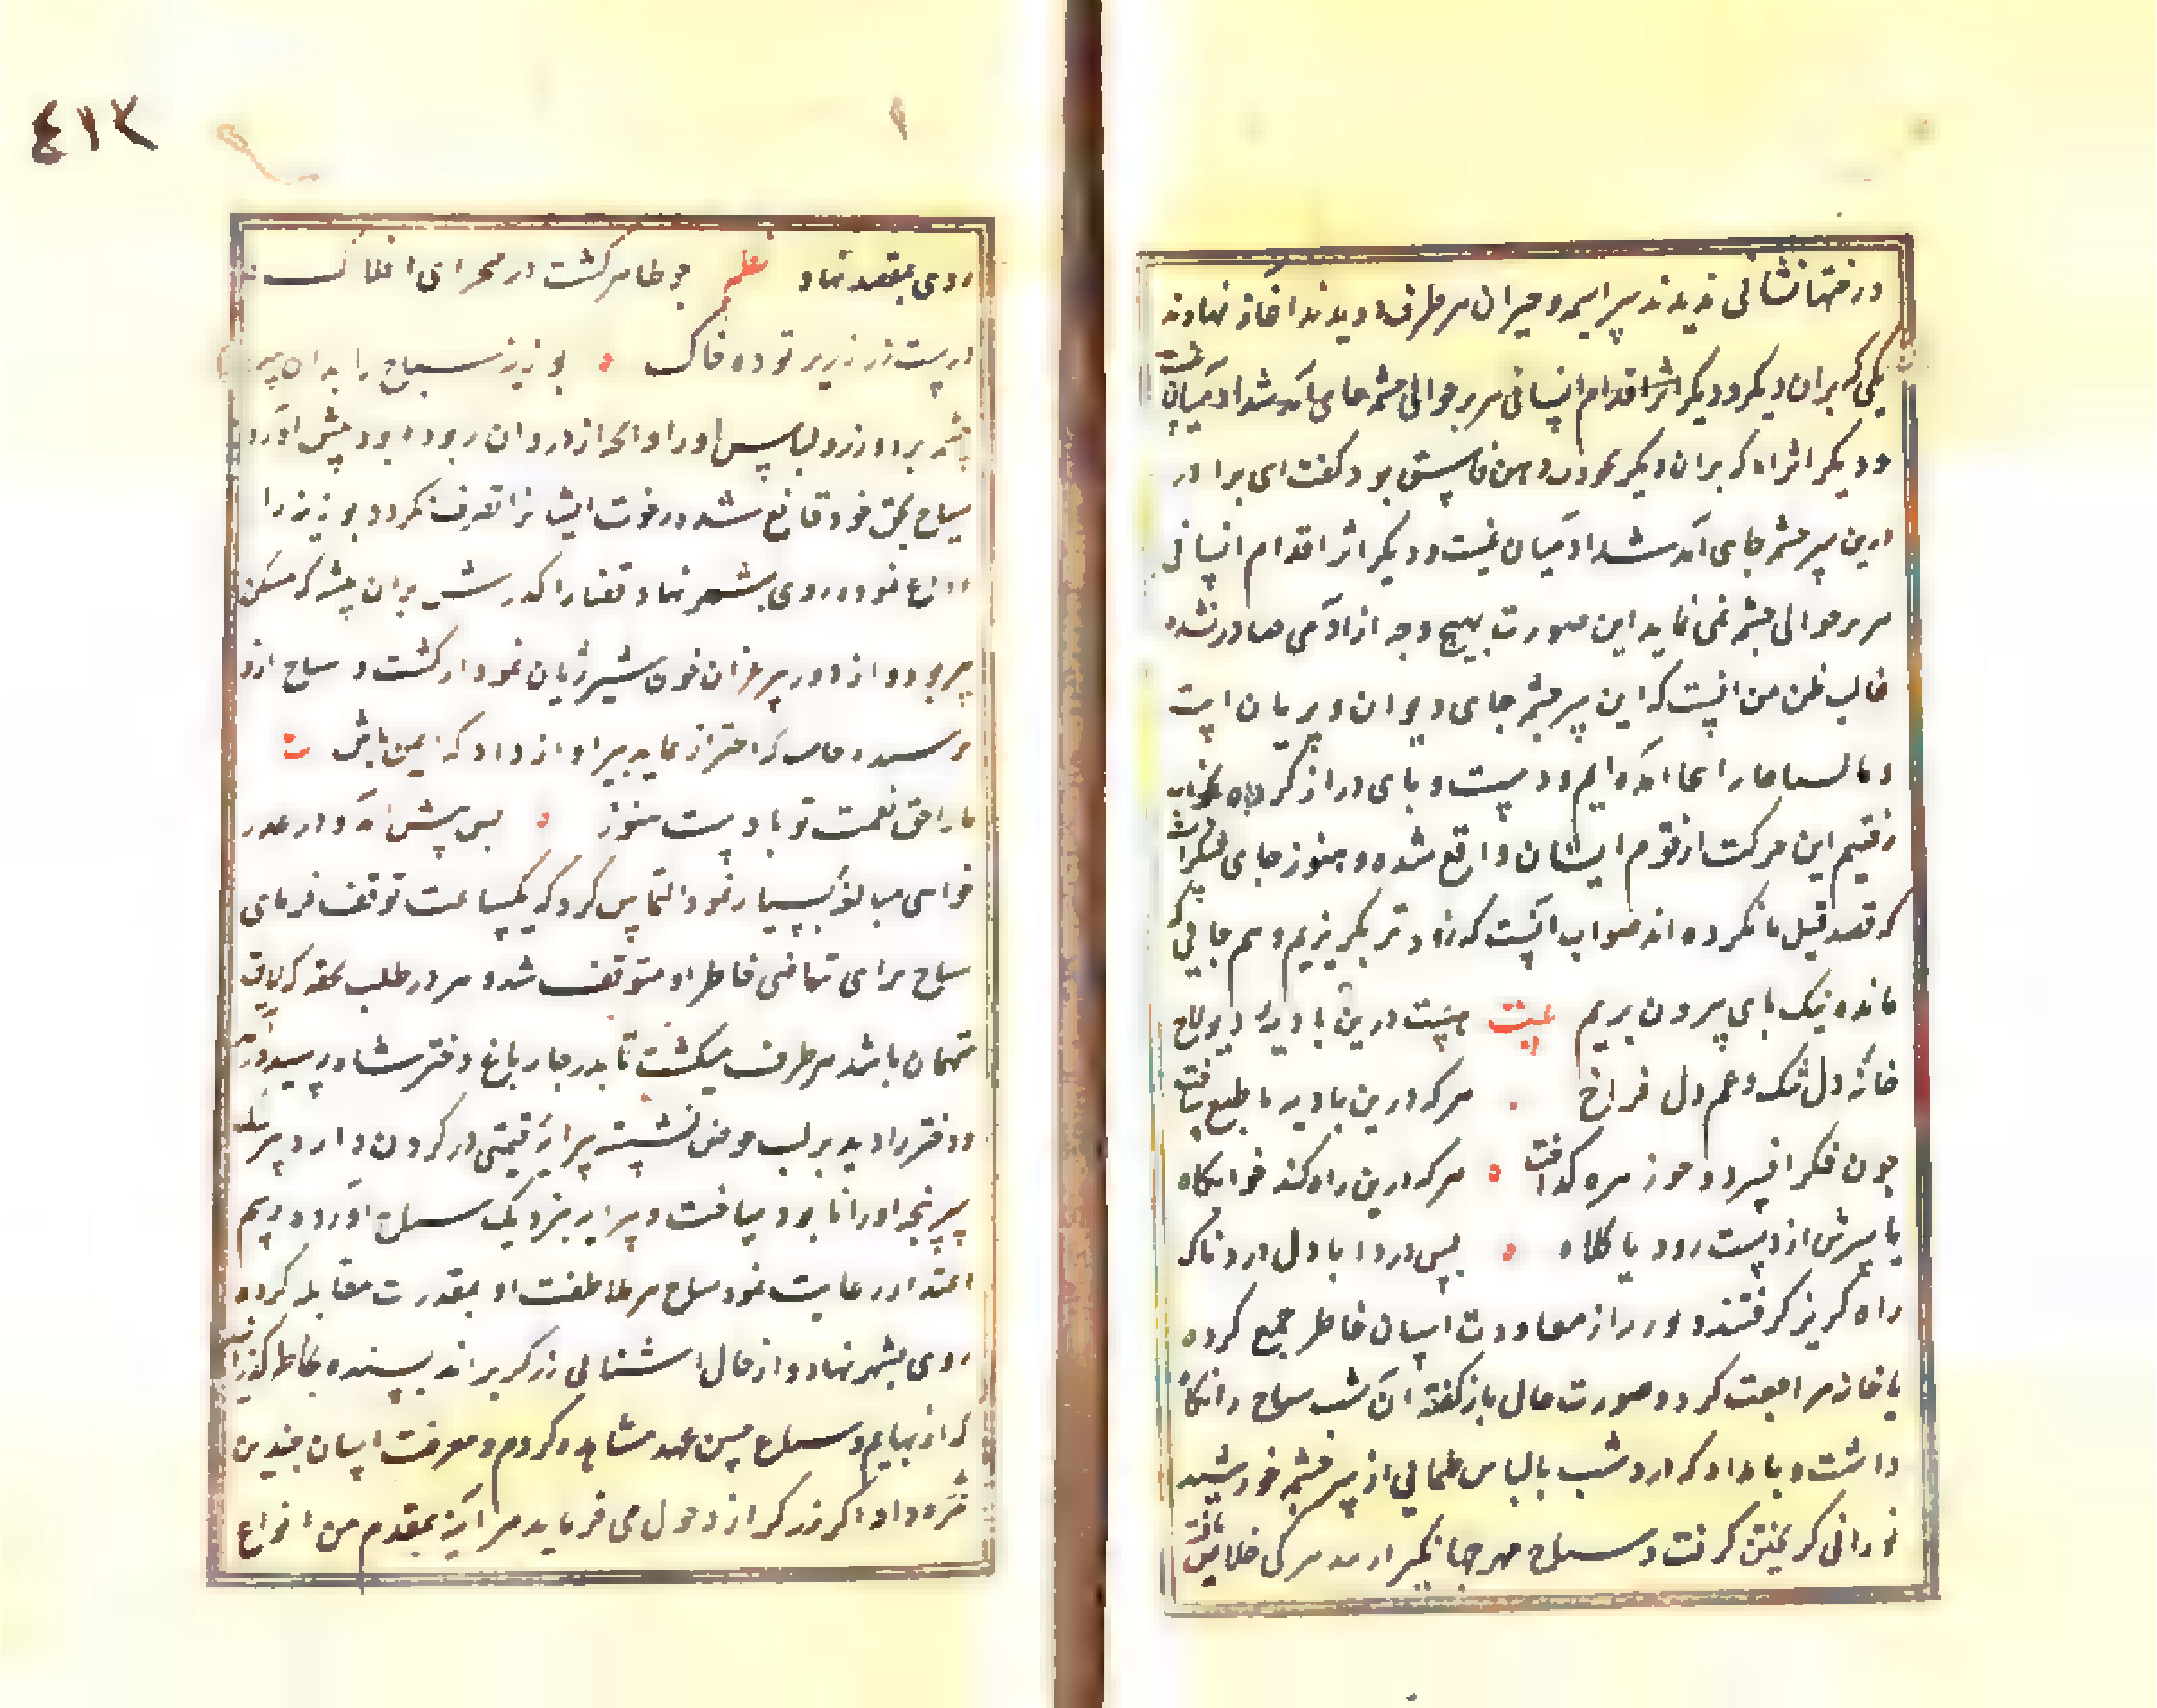 درختها نشانی ندیدند سراسیمه و حیران هر طرف دویدند آغاز نهادند
یکی که بران دیگر و دیگر اثر اقدام انسانی هر بر حوالی چشمه جای آمد شد آدمیان نیست
و دیگر اثر اه که بران دیگر بود گفت ای برادر
درین سر چشمه جای آمد شد آدمیان نیست و دیگر اثر اقدام انسانی
بر حوالی چشمه نمی نماید این صورت بهیچ وجه از آدمی صادر نشده
غالب ظن من انست که این سر چشمه جای دیوان و پریان است
و ما اینجا آمده ایم و دست و پای دراز کرده بخواب
رفتیم این حرکت از قوم ایشان واقع شده و هنوز جای شکرانست
که قصد قتل ما نکرده اند صواب آنست که زودتر بگریزیم و هم جایی که
مانده نیک پای بیرون بریم بیت هست درین بادیه دیولاخ
خانه دل تنگ و غم دل فراخ هر که درین بادیه با طبع ساخت
چون جگر افسرد و چو زهره گداخت هر که درین راه کند خوابگاه
یا سرش از دست رود یا کلاه پس دزدان با دل دردناک
راه گریز گرفتند و از معاودت ایشان خاطر جمع کرده
با خانه مراجعت کرد و صورت حال باز گفت آن شب سیاح را نگاه
داشت و بامداد که دزد شب با لباس ظلمانی از سر چشمه خورشید
نورانی گریختن گرفت و سیاح مهر جهانگیر از خلاص یافت
روی بمقصد نهاد نظم چو ظاهر گشت از صحرای افلاک
درست زر ز زیر توده خاک بوزینه سیاح را بدان سر
چشمه برد و زر و لباس او را و انچه از دزدان ربوده بود پیش آورد
سیاح بحق خود قانع شد و رخوت ایشان را تصرف نکرد و بوزینه را
وداع نموده روی بشهر نهاد قضا را گذرش بران بیشه که مسکن
ببر بود و از دور ببر غران چون شیر ژیان نمودار گشت و سیاح ازو
ترسیده خواست که احتراز نماید ببر آواز داد که ایمن باش
ما را حق نعمت تو یادست هنوز پس پیش آمد و در عذر
خواهی مبالغه بسیار نمود التماس کرد که یکساعت توقف فرمای
سیاح برای تقاضی خاطر او متوقف شد و ببر در طلب تحفه که لایق
مهمان باشد هر طرف میگشت تا بدر چارباغ دختر شاه رسید در آمد
و دختر را دید بر لب حوض نشسته پیرایه قیمتی در گردن دارد ببر
سرپنجه او را نابود ساخت و پیرایه بنزدیک سیاح آورد و رسم
اعتذار رعایت نمود سیاح ملاطفت او بمقدرت مقابله کرده
روی بشهر نهاد و از حال آشنایی زرگر براندیشید و بخاطر گذرانید
که از بهایم و سباع حسن عهد مشاهده کردم و معرفت ایشان چندین
ثمره داد اگر زرگر از دخول من خبر یابد هر آینه بمقدم من انواع
٤١٢